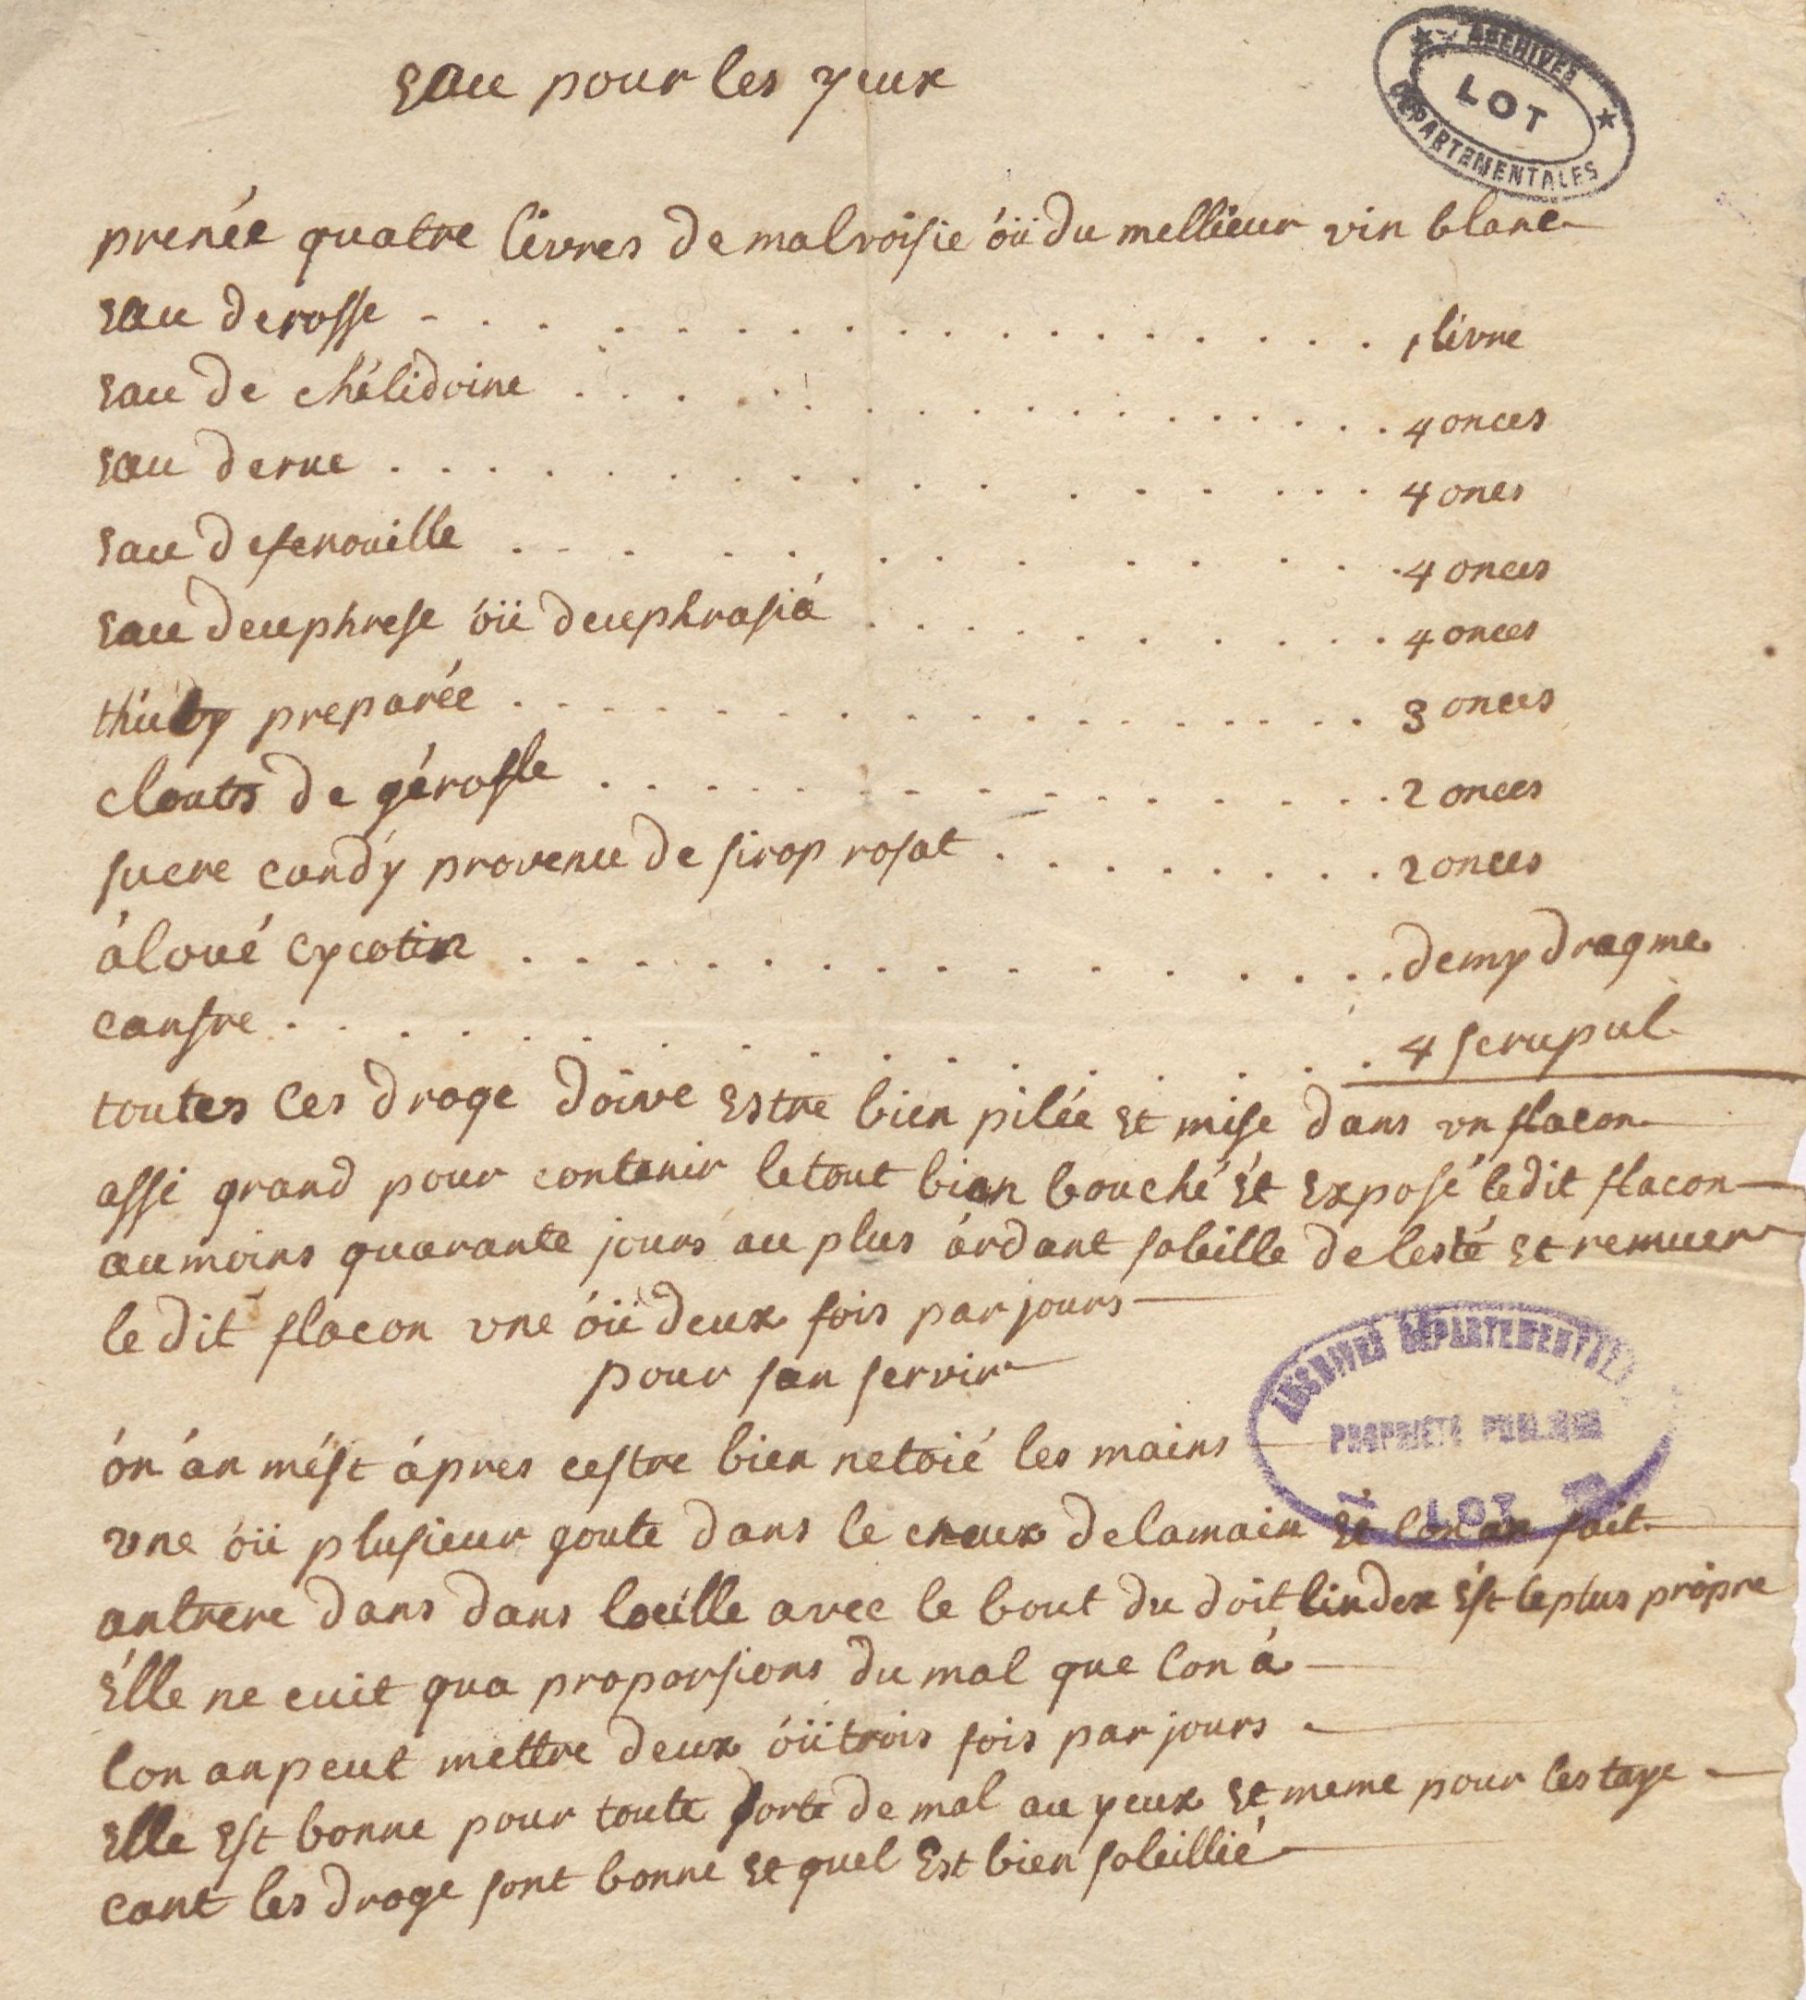 eau pour les yeux
ARCHIVES
LOT
DÉPARTEMENTALES
prenée quatre livres de malvoisie óü du mellieur vin blanc
eau de rosse - . . . . . . . . . . . . . . . . 1 livre
eau de chélidoine . . . . . . . . . . . . . . . 4 onces
eau de rue . . . . . . . . . . . . . . . . 4 ones
eau de fenouille . . . . . . . . . . . . . 4 onces
eau deuphrese óü deuphrasiá . . . . . . . . . 4 onces
preparée . . . . . . . . . . . . . . . . 3 onces
clouts de gérofle . . . . . . . . . . . . . . 2 onces
sucre candy provenu de sirop rosat . . . . . . . . 2 onces
áloué cycotin . . . . . . . . . . . . . . . demy dragme
canfre . . . . . . . . . . . . . . . . . . 4 scrupul
toutes ces droge doive estre bien pilée et mise dans un flacon
assi grand pour contenir le tout bien bouché ét exposé le dit flacon
au moins quarante jours au plus árdant soleille de lesté et remuer
le dit flacon une óü deux fois par jours
pour san servir
ón án mést ápres cestre bien netoié les mains
ARCHIVES DÉPARTEMENTALES
PROPRIÉTÉ PUBLIQUE
LOT
une óü plusieur goute dans le creux de la main et lon an fait
antrere dans dans loeille avec le bout du doit lindex ést le plus própre
élle ne cuit qua proporsions du mal que lon á
lon an peut mettre deux óü trois fois par jours
elle est bonne pour toute sorte de mal au yeux et meme pour les taye
cant les droge sont bonne et quel est bien soleillié